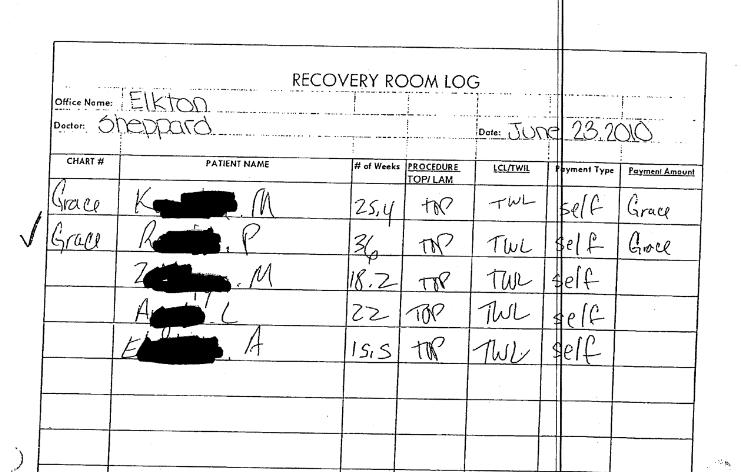 RECOVERY ROOM LOG
Office Name: Elkton
Doctor: Sheppard Date: June 23, 2010
CHART # PATIENT NAME # of Weeks PROCEDURE TOP/LAM LCL/TWIL Payment Type Payment Amount
Grace K M 25.4 TOP TWL self Grace
✓ Grace R , P 36 TOP TWL self Grace
Z , M 18.2 TOP TWL self
A L 22 TOP TWL self
E , A 15.5 TOP TWL self